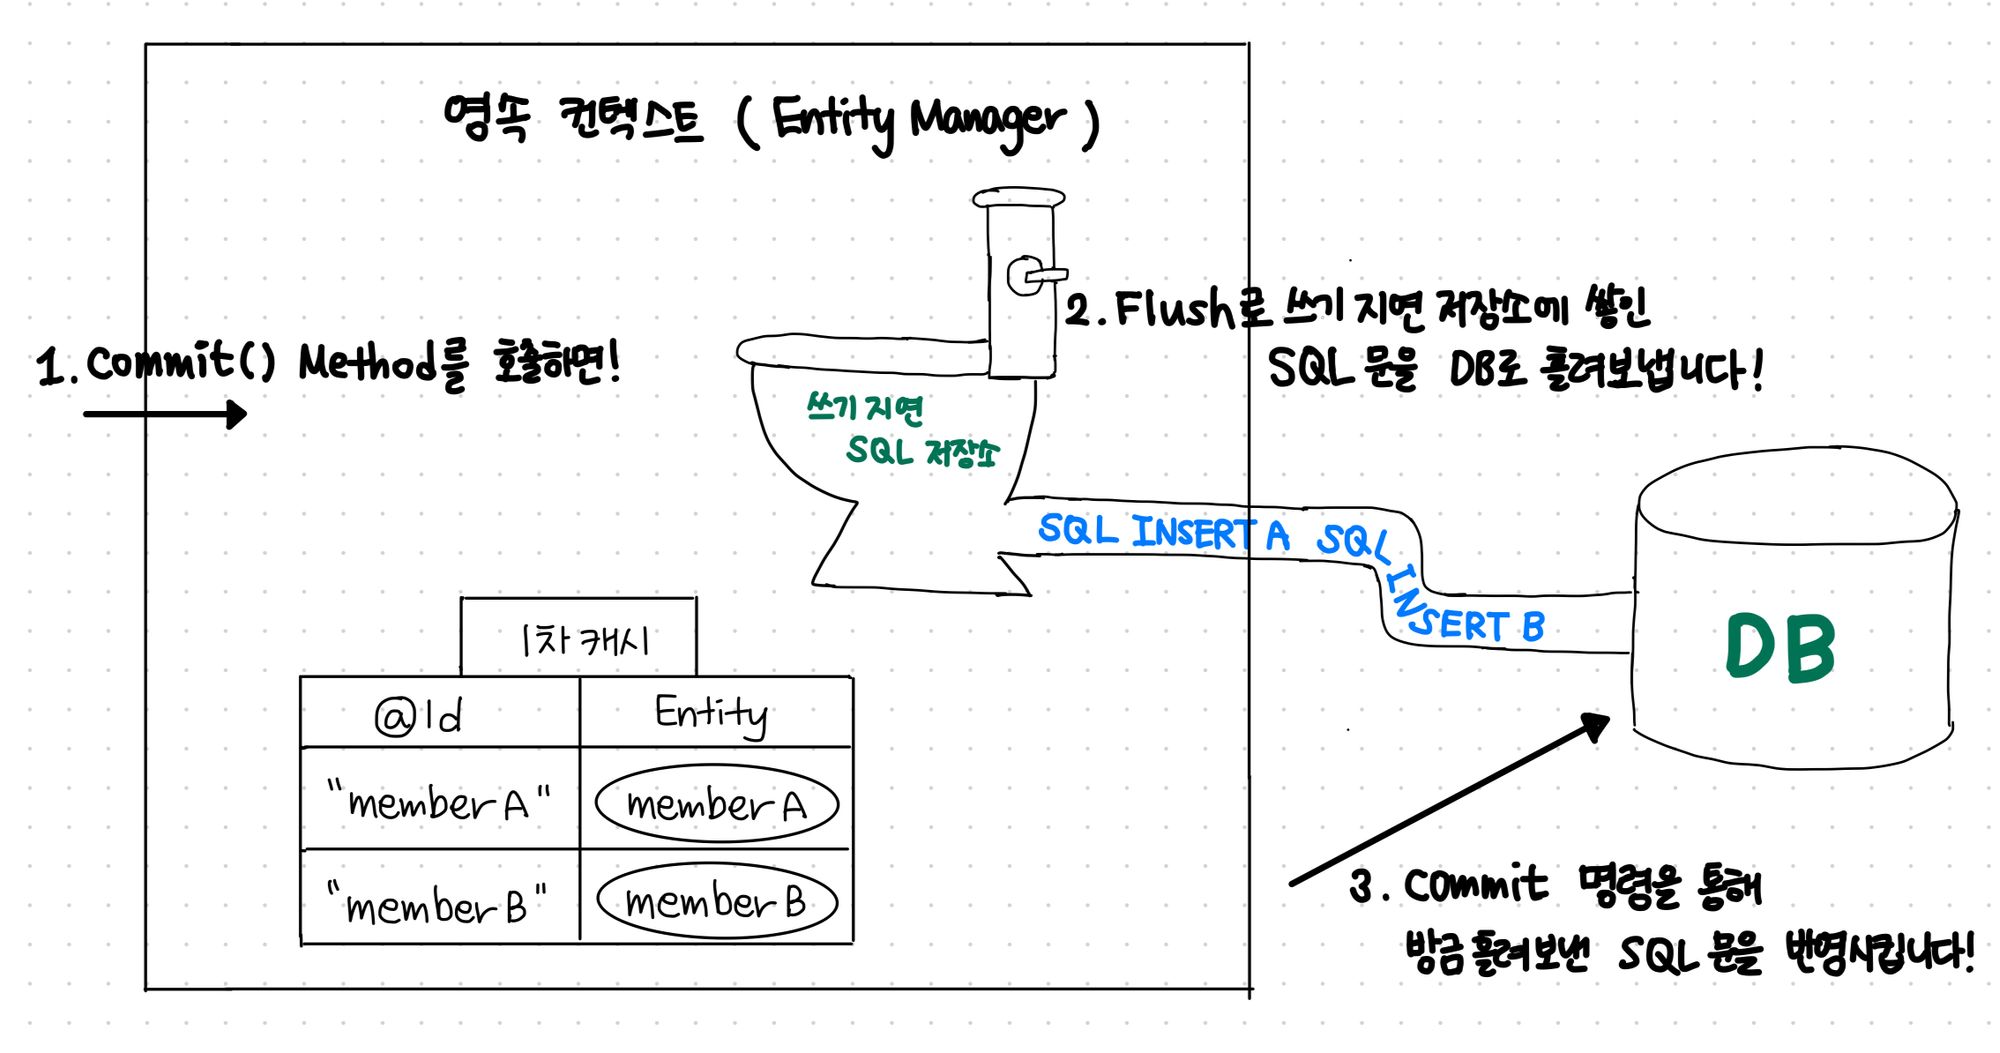 영속 컨텍스트 ( Entity Manager )
1. Commit() Method를 호출하면!
2. Flush로 쓰기 지연 저장소에 쌓인
SQL 문을 DB로 흘려보냅니다!
쓰기 지연
SQL 저장소
SQL INSERT A SQL INSERT B
DB
1차 캐시
@Id Entity
"member A" member A
"member B" member B
3. Commit 명령을 통해
방금 흘려보낸 SQL 문을 반영시킵니다!